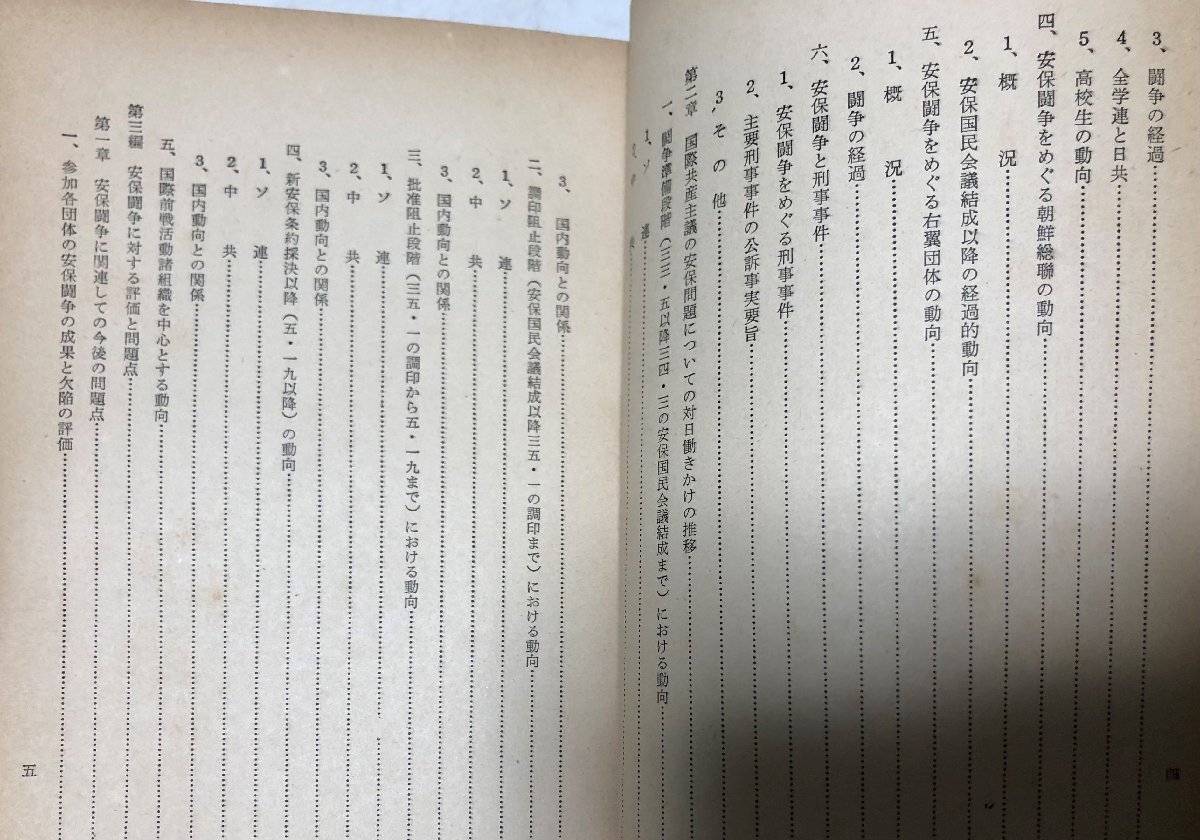 3、闘争の経過
4、全学連と日共
5、高校生の動向
四、安保闘争をめぐる朝鮮総聯の動向
1、概況
2、安保国民会議結成以降の経過的動向
五、安保闘争をめぐる右翼団体の動向
1、概況
2、闘争の経過
六、安保闘争と刑事事件
1、安保闘争をめぐる刑事事件
2、主要刑事事件の公訴事実要旨
3、その他
第二章 国際共産主議の安保問題についての対日働きかけの推移
一、闘争準備段階(三三・五以降三四・三の安保国民会議結成まで)における動向
1、ソ連
2、中共
四
3、国内動向との関係
二、調印阻止段階(安保国民会議結成以降三五・一の調印まで)における動向
1、ソ連
2、中共
3、国内動向との関係
三、批准阻止段階(三五・一の調印から五・一九まで)における動向
1、ソ連
2、中共
3、国内動向との関係
四、新安保条約採決以降(五・一九以降)の動向
1、ソ連
2、中共
3、国内動向との関係
五、国際前戦活動諸組織を中心とする動向
第三編 安保闘争に対する評価と問題点
第一章 安保闘争に関連しての今後の問題点
一、参加各団体の安保闘争の成果と欠陥の評価
五